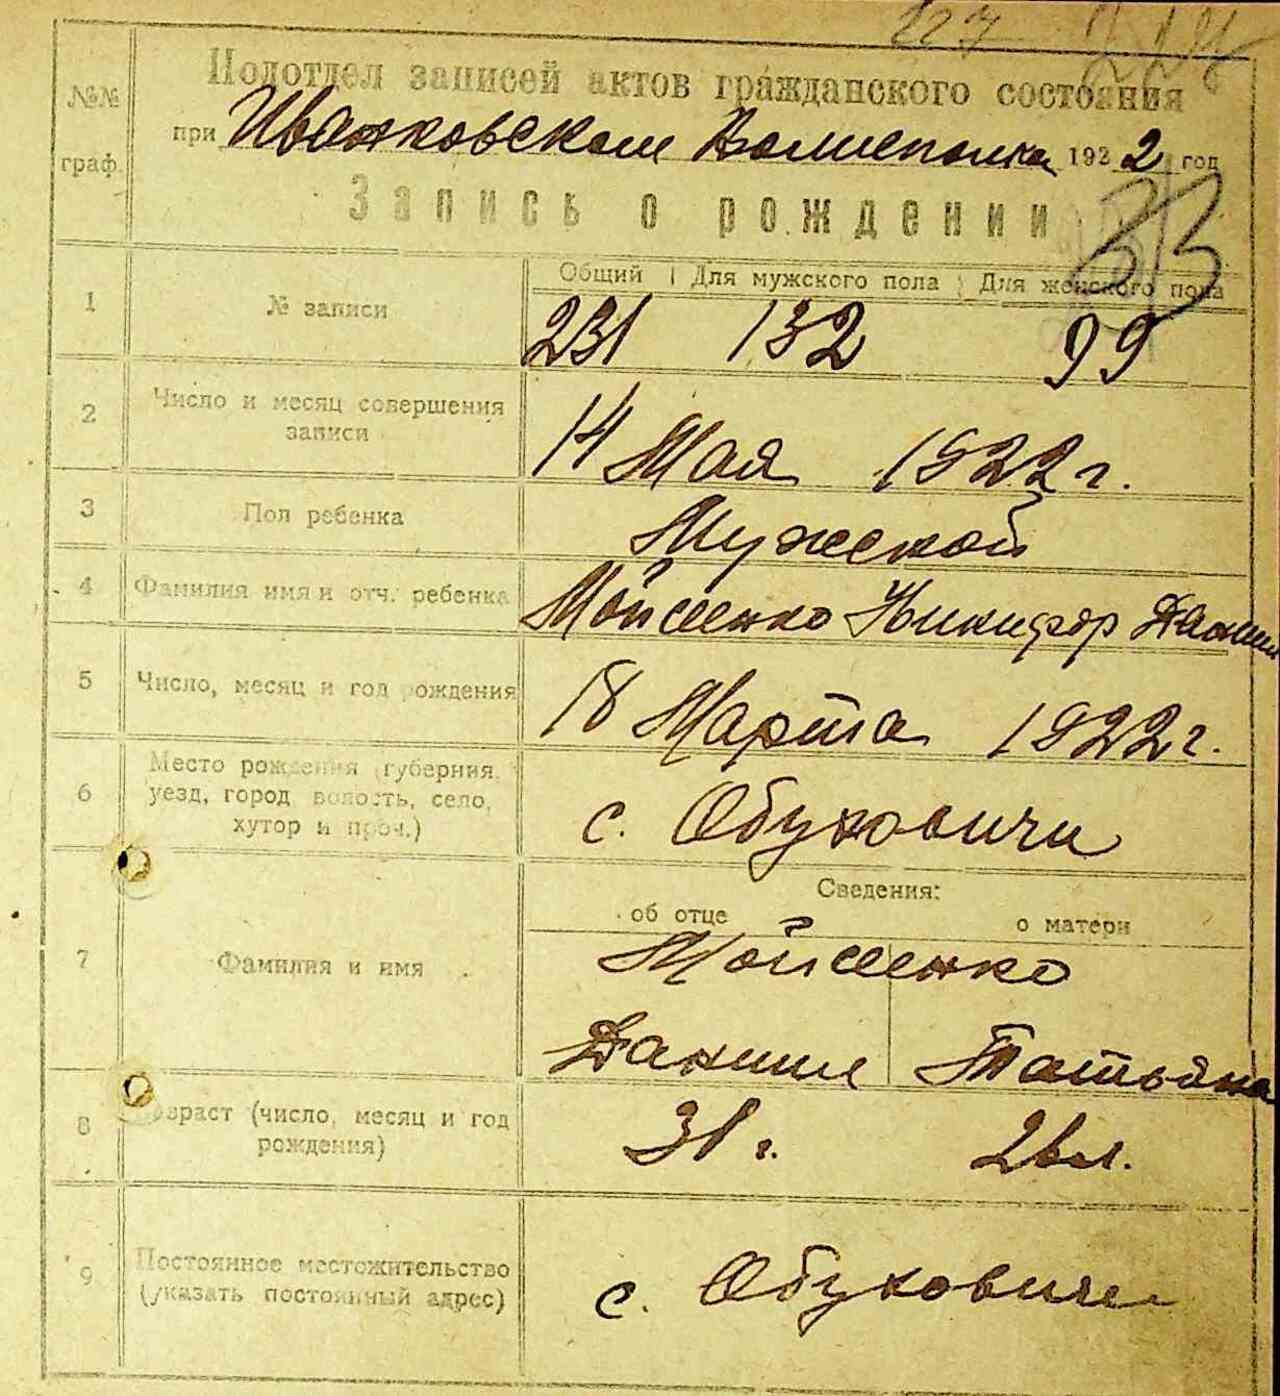 227
№№ граф.
Подотдел записей актов гражданского состояния
при Иванковском Волисполкоме 1922 год
Запись о рождении
33
Общий | Для мужского пола | Для женского пола
1 № записи 231 132 99
2 Число и месяц совершения записи 14 Мая 1922 г.
3 Пол ребенка Мужской
4 Фамилия имя и отч. ребенка Мойсеенко Никифор Данил
5 Число, месяц и год рождения 18 Марта 1922 г.
6 Место рождения (губерния, уезд, город волость, село, хутор и проч.) с. Обуховичи
Сведения:
об отце о матери
7 Фамилия и имя Мойсеенко
Даниил Татьяна
8 Возраст (число, месяц и год рождения) 31 г. 26 л.
9 Постоянное местожительство (указать постоянный адрес) с. Обуховичи